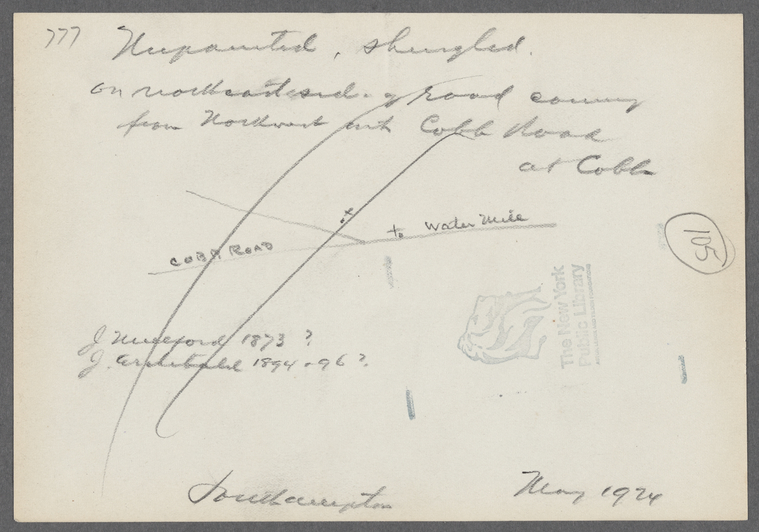 777
Unpainted, shingled.
on northeast side of road coming
from Northwest with Cobb Road
at Cobb
x
to Water Mill
COBB ROAD
105
The New York
Public Library
J Mulford 1873 ?
J. Archibald 1894 + 96 ?
Southampton
May 1924